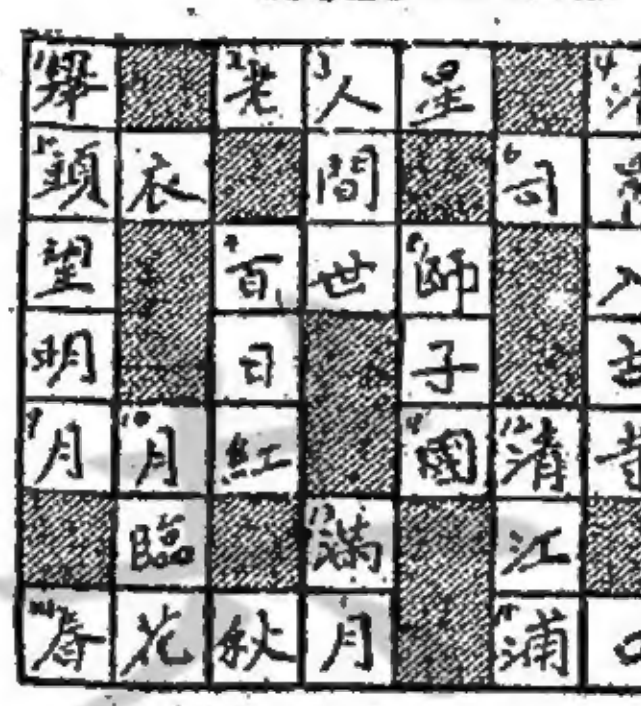 擧 老 人 星
頭 衣 間 司
望 百 世 師
明 日 子
月 月 紅 國 清
臨 満 江
春 花 秋 月 浦